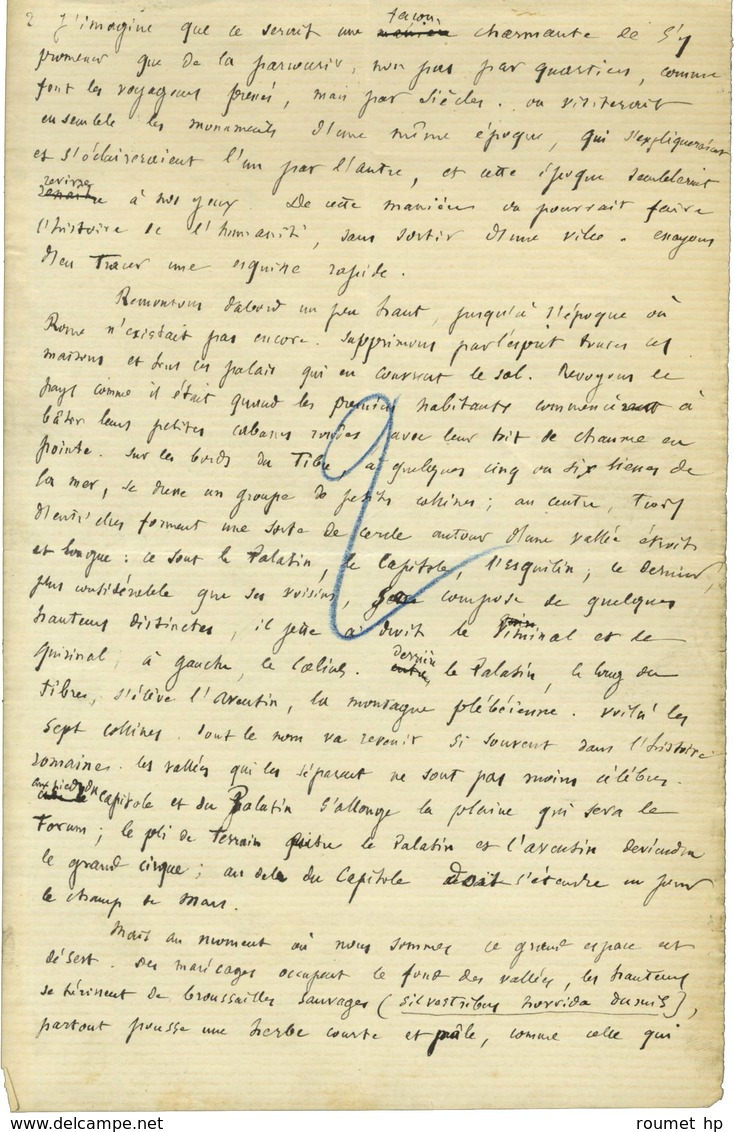 2 J'imagine que ce serait une façon charmante de s'y
promener que de la parcourir, non pas par quartiers, comme
font les voyageurs pressés, mais par siècles. on visiterait
ensemble les monuments d'une même époque, qui s'expliqueraient
et s'éclaireraient l'un par l'autre, et cette époque semblerait
revivre à nos yeux. De cette manière on pourrait faire
l'histoire de l'humanité, sans sortir d'une ville. essayons
d'en tracer une esquisse rapide.
Remontons d'abord un peu haut, jusqu'à l'époque où
Rome n'existait pas encore. supprimons par l'esprit toutes ces
maisons et tous ces palais qui en couvrent le sol. Revoyons le
pays comme il était quand les premiers habitants commencèrent à
bâtir leurs petites cabanes rondes avec leur toit de chaume en
pointe. sur les bords du Tibre, à quelques cinq ou six lieues de
la mer, se dresse un groupe de petites collines ; au centre, trois
d'entr'elles forment une sorte de cercle autour d'une vallée étroite
et longue : ce sont le Palatin, le Capitole, l'Esquilin ; ce dernier,
plus considérable que ses voisins, se compose de quelques
hauteurs distinctes, il jette à droite le Viminal et le
quirinal, à gauche, le Cœlius. derrière le Palatin, le long du
Tibre, s'élève l'aventin, la montagne plébéienne. voilà les
sept collines. dont le nom va revenir si souvent dans l'histoire
romaine. les vallées qui les séparent ne sont pas moins célèbres.
aux pieds du capitole et du Palatin s'allonge la plaine qui sera le
Forum ; le pli de terrain entre le Palatin et l'aventin deviendra
le grand cirque ; au delà du Capitole doit s'étendre un jour
le champ de Mars.
Mais au moment où nous sommes ce grand espace est
désert. des marécages occupent le fond des vallées, les hauteurs
se hérissent de broussailles sauvages (silvestribus horrida dumis),
partout pousse une herbe courte et pâle, comme celle qui
roumet hp